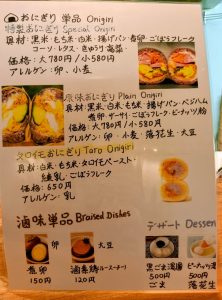 おにぎり 単品 Onigiri
特製おにぎり Special Onigiri
具材:黒米・もち米・白米・揚げパン・煮卵・ごぼうフレーク
コーン・レタス・きゅうり・高菜
価格:大780円/小580円
アレルゲン:卵・小麦
原味おにぎり Plain Onigiri
具材:黒米・白米・もち米・揚げパン・ベジハム
煮卵・ザーサイ・ごぼうフレーク・ピーナッツ粉
価格:大780円/小580円
アレルゲン:卵・小麦・落花生・大豆
タロイモおにぎり Taro Onigiri
具材:黒米・白米・もち米・タロイモペースト
練乳・ごぼうフレーク
価格:650円
アレルゲン:乳
滷味単品 Braised Dishes
卵
大豆
煮卵
150円
滷素鶏(ルースーチー)
120円
デザート Dessert
黒ごま湯圓
500円
ごま
ピーナッツ湯圓
500円
落花生